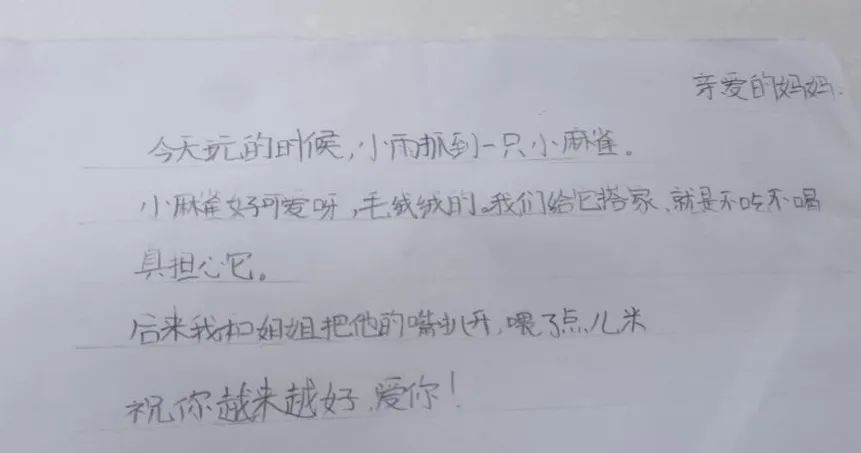 亲爱的妈妈.
今天玩的时候,小雨抓到一只小麻雀。
小麻雀好可爱呀,毛绒绒的。我们给它搭家、就是不吃不喝
具担心它。
后来我和姐姐把他的嘴扒开,喂了点儿米
祝你越来越好、爱你!